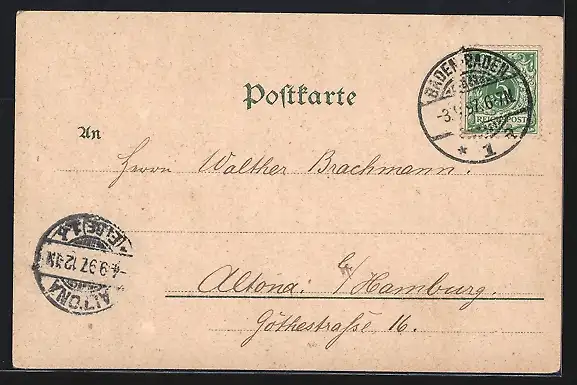 Postkarte
BADEN-BADEN
3.9.97. 6-7N
* 1 a
REICHSPOST
An
Herrn Walther Brachmann.
ALTONA
(ELBE) 1
4.9.97. 12-1N
Altona. b/Hamburg.
Göthestraße 16.